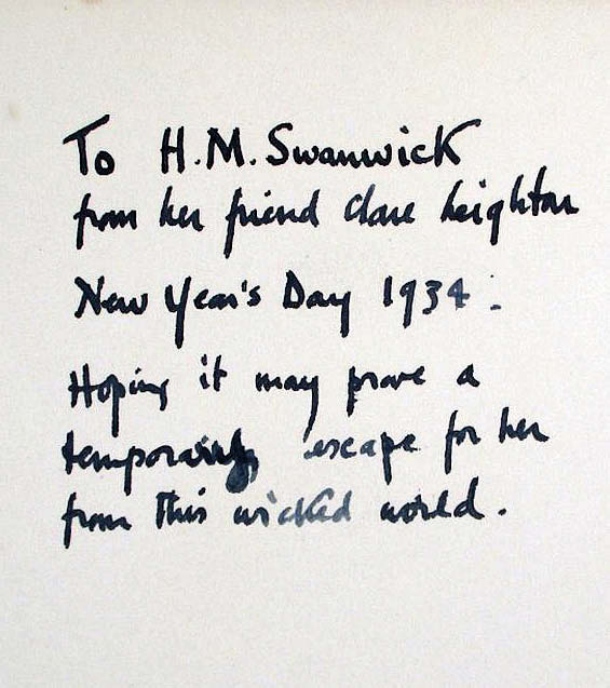 To H.M. Swanwick
from her friend Clare Leighton
New Year's Day 1934.
Hoping it may prove a
temporary escape for her
from this wicked world.